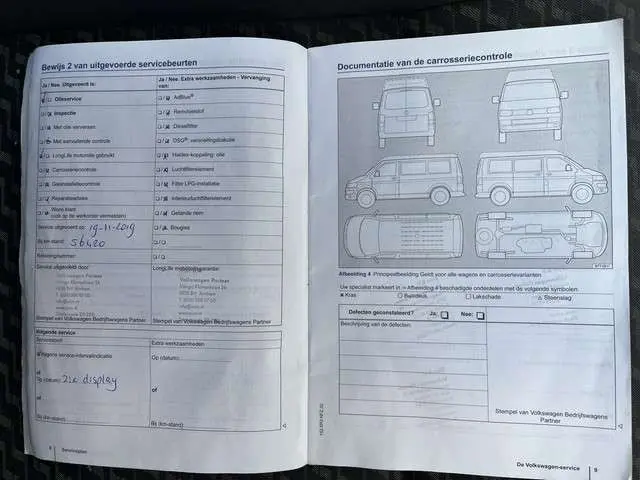 Bewijs 2 van uitgevoerde servicebeurten
Ja / Nee Uitgevoerd is:
Ja / Nee: Extra werkzaamheden - Vervanging van:
Olieservice
AdBlue®
Inspectie
Remvloeistof
Met olie verversen
Dieselfilter
Met aanvullende controle
LongLife motorolie gebruikt
Haldex-koppeling: olie
Carrosseriecontrole
Luchtfilterelement
Filter LPG-installatie
Reparatieadvies
Interieurluchtfilterelement
Ware klant
(ook op de werkorder vermelden)
Getande riem
Service uitgevoerd op: 19-11-2019
Bougies
Bij km-stand: 56420
Rekeningnummer:
Service uitgevoerd door:
Stempel van Volkswagen Bedrijfswagens Partner
Stempel van Volkswagen Bedrijfswagens Partner
Volgende service
Extra werkzaamheden
Volgens service-intervalindicatie
Op (datum):
of
Op (datum): zie display
of
of
Bij (km-stand):
Bij (km-stand):
Serviceplan
Documentatie van de carrosseriecontrole
Afbeelding 4 Principeafbeelding Geldt voor alle wagens en carrosserievarianten
Uw specialist markeert in → Afbeelding 4 beschadigde onderdelen met de volgende symbolen:
Kras
Lakschade
Steenslag
Defecten geconstateerd?
Ja:
Nee:
Beschrijving van de defecten:
Stempel van Volkswagen Bedrijfswagens Partner
De Volkswagen-service 9